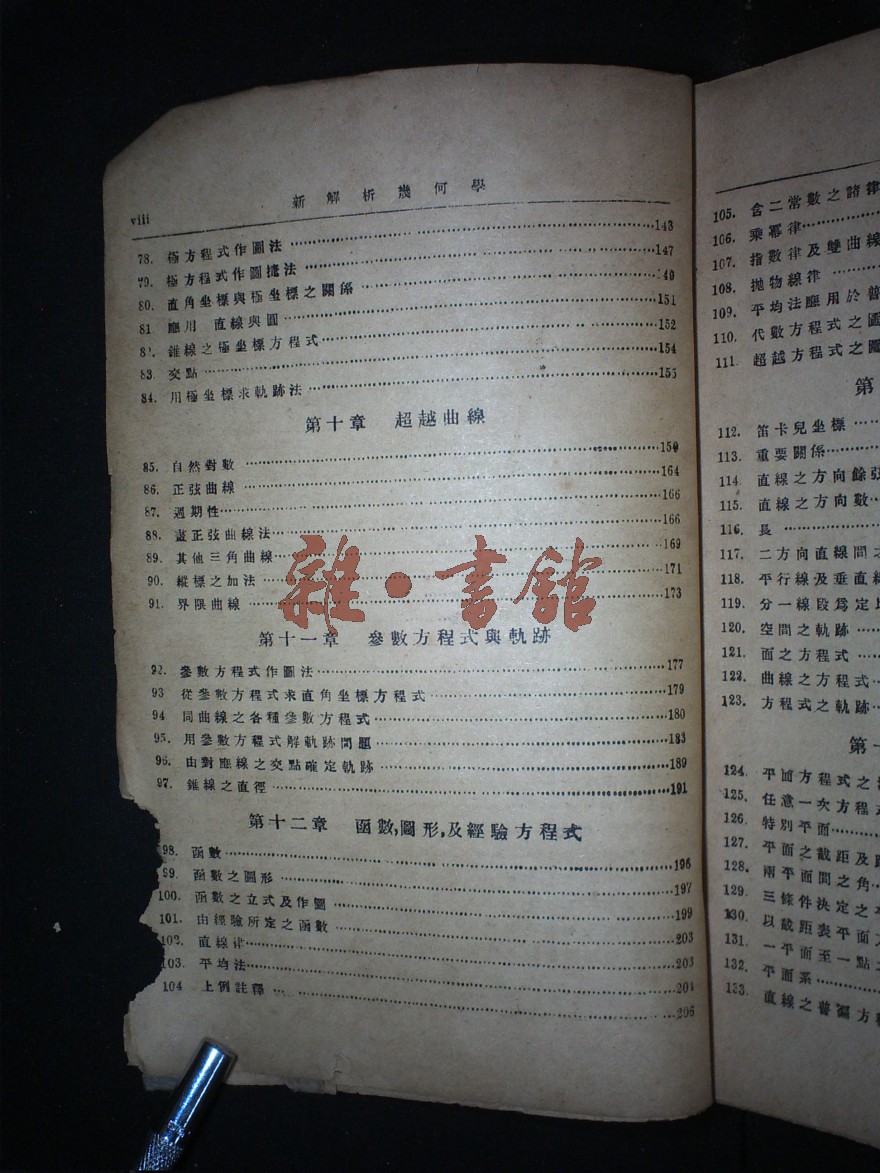 viii 新解析幾何學
78. 極方程式作圖法 143
79. 極方程式作圖捷法 147
80. 直角坐標與極坐標之關係 49
81 應用 直線與圓 151
8?. 錐線之極坐標方程式 152
83. 交點 154
84. 用極坐標求軌跡法 155
第十章 超越曲線
85. 自然對數 159
86. 正弦曲線 164
87. 週期性 166
88. 畫正弦曲線法 166
89. 其他三角曲線 169
90. 縱標之加法 171
91. 界限曲線 173
第十一章 參數方程式與軌跡
92. 參數方程式作圖法 177
93 從參數方程式求直角坐標方程式 179
94 同曲線之各種參數方程式 180
95. 用參數方程式解軌跡問題 183
96. 由對應線之交點確定軌跡 189
97. 錐線之直徑 191
第十二章 函數,圖形,及經驗方程式
98. 函數 196
99. 函數之圖形 197
100. 函數之立式及作圖 199
101. 由經驗所定之函數 203
102. 直線律 203
103. 平均法 204
104 上例註釋 206
105. 含二常數之諸律
106. 乘冪律
107. 指數律及雙曲線
108. 拋物線律
109. 平均法應用於普
110. 代數方程式之圖
111. 超越方程式之圖
第
112. 笛卡兒坐標
113. 重要關係
114 直線之方向餘弦
115. 直線之方向數
116. 長
117. 二方向直線間之
118. 平行線及垂直線
119. 分一線段爲定比
120. 空間之軌跡
121. 面之方程式
122. 曲線之方程式
123. 方程式之軌跡
第十
124. 平面方程式之
125. 任意一次方程式
126. 特別平面
127. 平面之截距及跡
128. 兩平面間之角
129. 三條件決定之平
130. 以截距表平面
131. 一平面至一點
132. 平面系
133. 直線之普遍方程
雜·書館